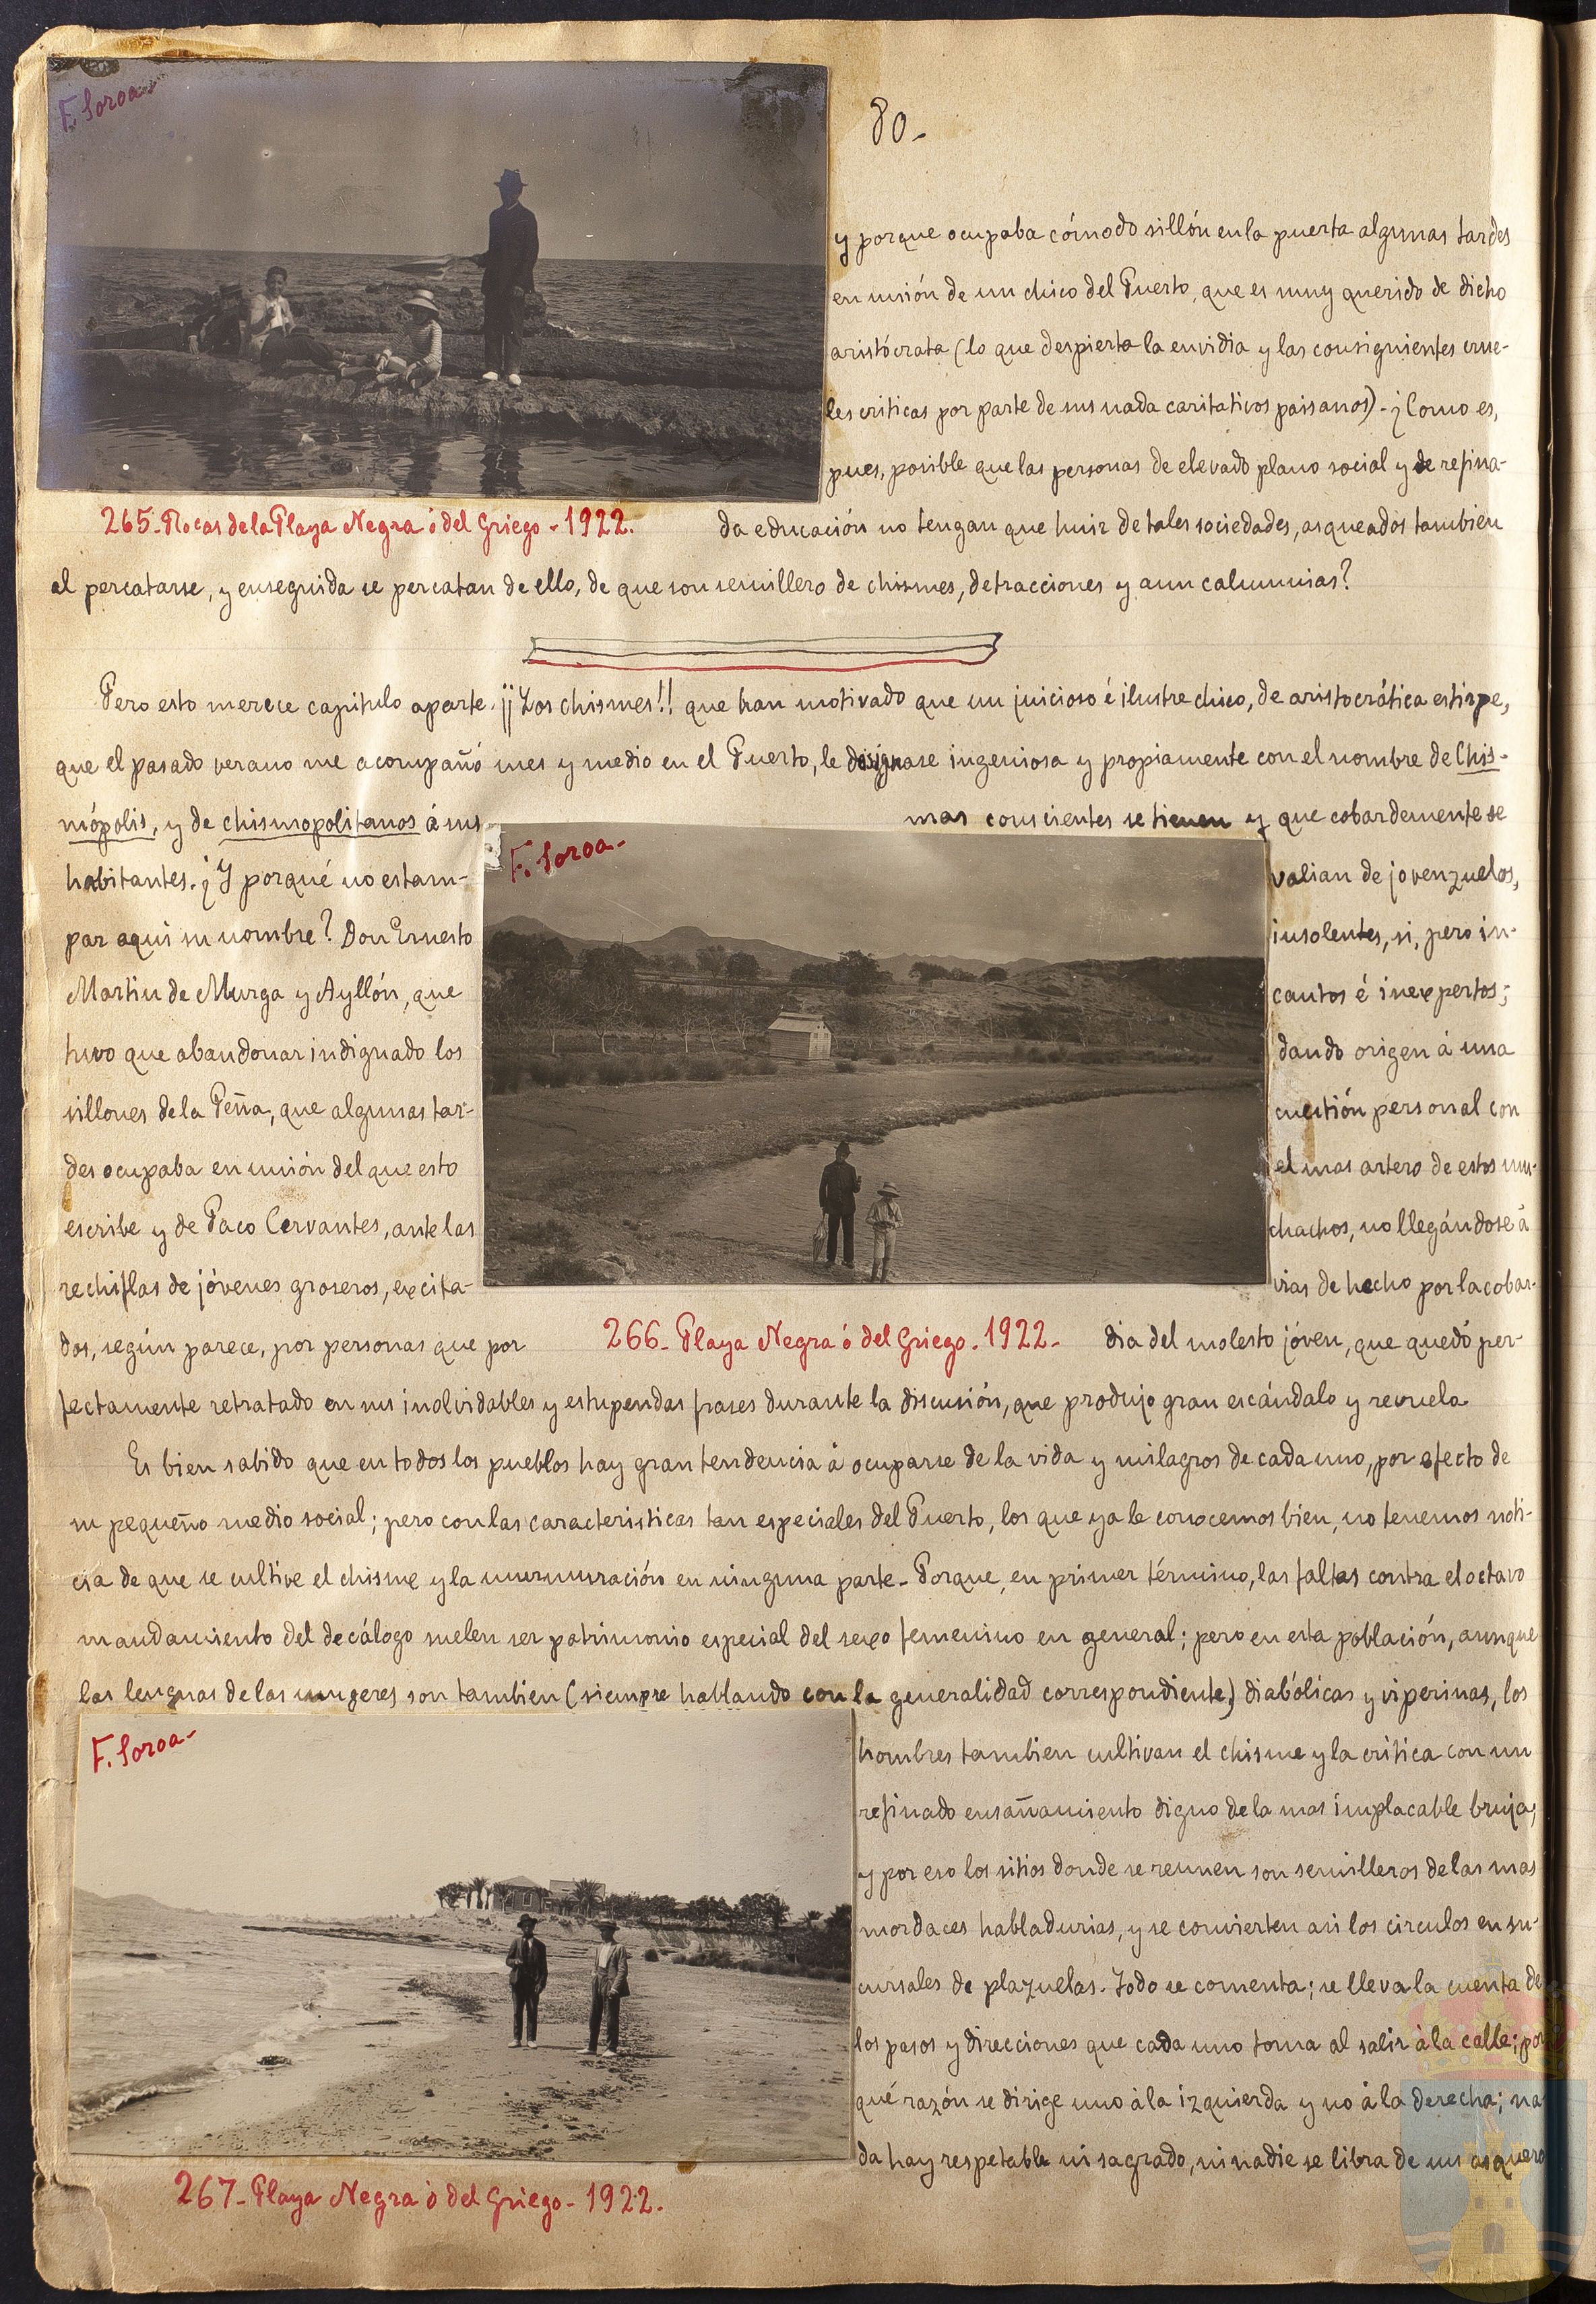 F. Soroa-
80.-
y porque ocupaba cómodo sillón en la puerta algunas tardes
en unión de un chico del Puerto, que es muy querido de dicho
aristócrata (lo que despierta la envidia y las consiguientes crue-
les criticas por parte de sus nada caritativos paisanos) - ¿Como es,
pues, posible que las personas de elevado plano social y de refina-
265.-Rocas de la Playa Negra ó del Griego - 1922.
da educación no tengan que huir de tales sociedades, asqueados tambien
al percatarse, y enseguida se percatan de ello, de que son semillero de chismes, detracciones y aun calumnias?
Pero esto merece capitulo aparte. ¡¡Los chismes!! que han motivado que un juicioso é ilustre chico, de aristocrática estirpe,
que el pasado verano me acompañó mes y medio en el Puerto, le designase ingeniosa y propiamente con el nombre de Chis-
mópolis, y de chismopolitanos á sus
habitantes. ¿Y porqué no estam-
par aqui su nombre? Don Ernesto
Martin de Murga y Ayllón, que
tuvo que abandonar indignado los
sillones de la Peña, que algunas tar-
des ocupaba en unión del que esto
escribe y de Paco Cervantes, ante las
rechiflas de jóvenes groseros, excita-
dos, según parece, por personas que por
F. Soroa-
266.- Playa Negra ó del Griego. 1922.-
mas conscientes se tienen y que cobardemente se
valian de jovenzuelos,
insolentes, si, pero in-
cautos é inexpertos;
dando origen á una
cuestión personal con
el mas artero de estos mu-
chachos, no llegándose á
vias de hecho por la cobar-
dia del molesto jóven, que quedó per-
fectamente retratado en sus inolvidables y estupendas frases durante la discusión, que produjo gran escándalo y revuelo.
Es bien sabido que en todos los pueblos hay gran tendencia á ocuparse de la vida y milagros de cada uno, por efecto de
su pequeño medio social; pero con las caracteristicas tan especiales del Puerto, los que ya le conocemos bien, no tenemos noti-
cia de que se cultive el chisme y la murmuración en ninguna parte. Porque, en primer término, las faltas contra el octavo
mandamiento del decálogo suelen ser patrimonio especial del sexo femenino en general; pero en esta población, aunque
las lenguas de las mugeres son tambien (siempre hablando con la generalidad correspondiente) diabólicas y viperinas, los
F. Soroa-
hombres tambien cultivan el chisme y la critica con un
refinado ensañamiento digno de la mas implacable bruja;
y por eso los sitios donde se reunen son semilleros de las mas
mordaces habladurias, y se convierten asi los circulos en su-
cursales de plazuelas. Todo se comenta; se lleva la cuenta de
los pasos y direcciones que cada uno toma al salir á la calle; por
qué razón se dirige uno á la izquierda y no á la derecha; na-
da hay respetable ni sagrado, ni nadie se libra de un asquero
267.- Playa Negra ó del Griego - 1922.